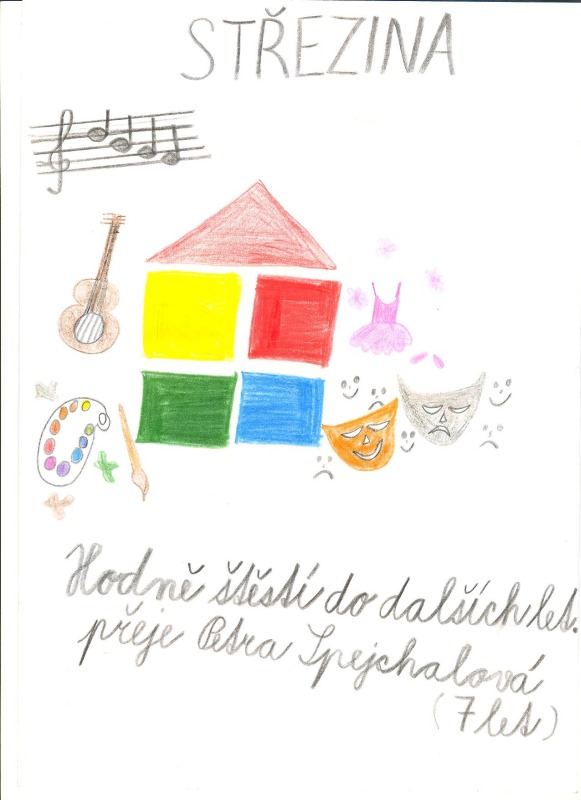 STŘEZINA
Hodně štěstí do dalších let.
přeje Petra Špejchalová
(7 let)